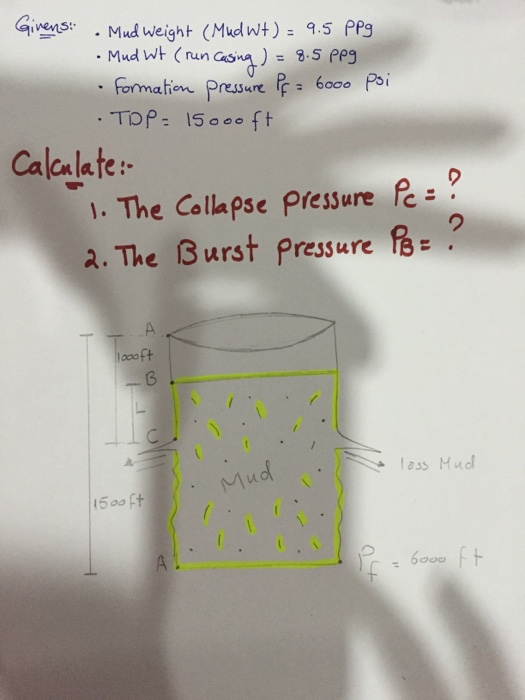 Givens:-
• Mud weight (Mud Wt) = 9.5 PPg
• Mud Wt (run Casing) = 8.5 PPg
• Formation pressure Pf = 6000 Psi
• TDP = 15000 ft
Calculate:-
1. The Collapse pressure Pc = ?
2. The Burst pressure PB = ?
A
1000ft
B
L
C
Mud
loss Mud
1500ft
A
Pf = 6000 ft